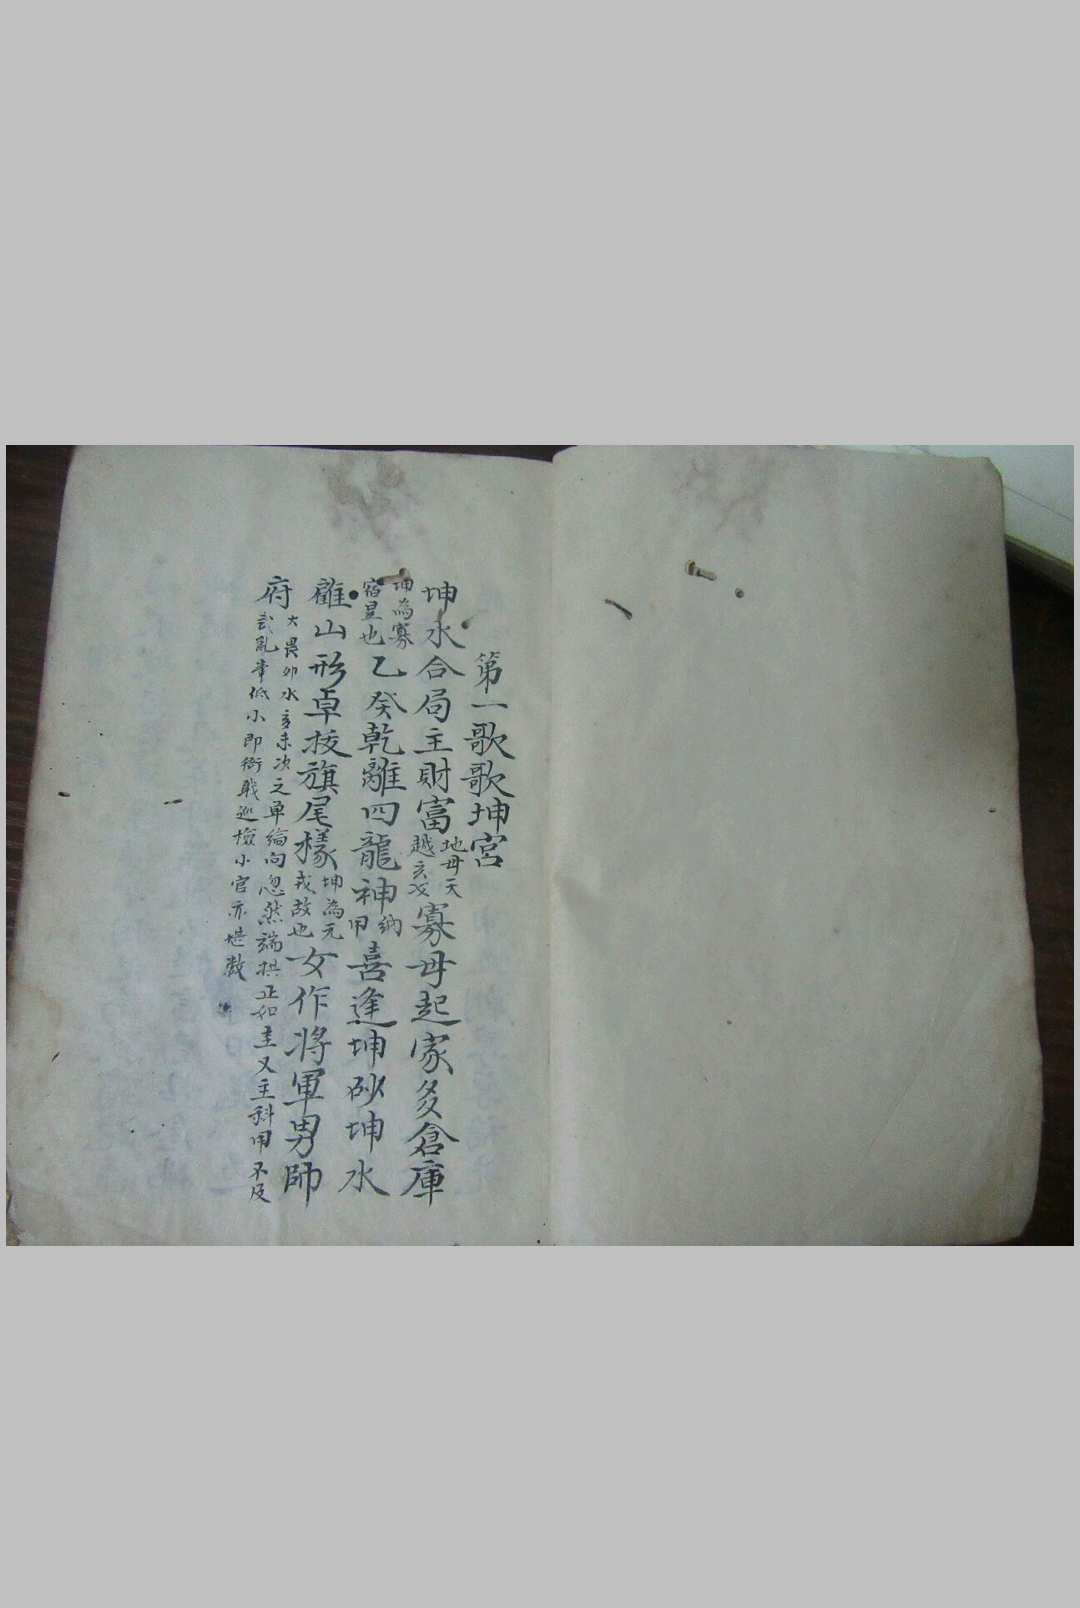 第一歌歌坤宮
坤水合局主財富地母天越亥次寡母起家多倉庫
坤為寡宿星也乙癸乾離四龍神納甲喜逢坤砂坤水
山形卓拔旗尾樣坤為元戎故也女作將軍男帥
府大畏卯水亥未次之單向忽然端拱正如圭又主科甲不及
武亂韋低小即衙戰巡檢小官亦堪數